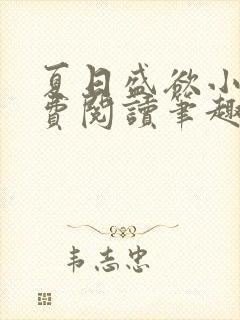 夏日盛欲小
费阅读笔趣
韦志忠